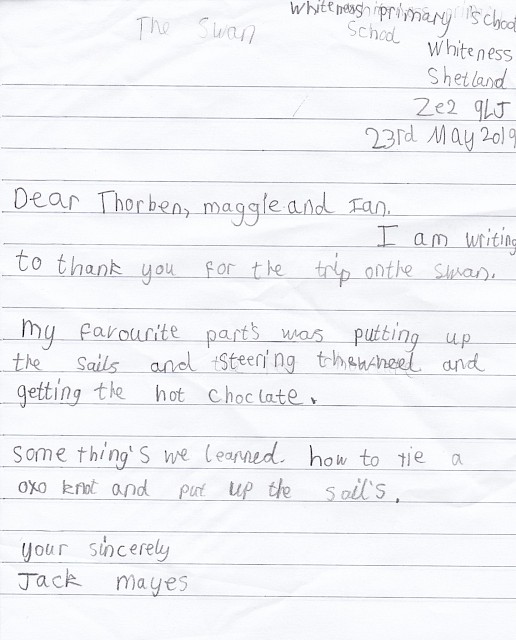 The Swan
Whiteness primary school
School
Whiteness
Shetland
Ze2 9LJ
23rd May 2019
Dear Thorben, maggie and Ian.
I am writing
to thank you for the trip onthe Swan.
my favourite part's was putting up
the sails and steering the wheel and
getting the hot choclate.
some thing's we learned. how to tie a
oxo knot and put up the sail's.
your sincerely
Jack mayes